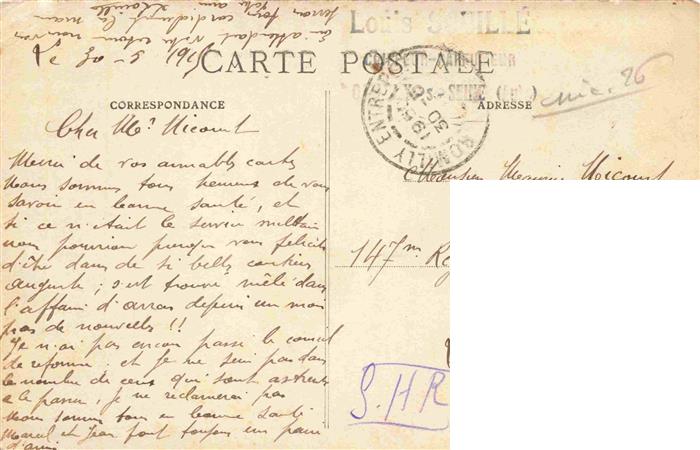 En attendant votre retour nous vous
serrons bien cordialement la main
Le 30-5 1915
CARTE POSTALE
Louis
CORRESPONDANCE
ADRESSE
ROMILLY ENTREPOT
30
Cher Mr Nicourt
Merci de vos aimables cartes
Nous sommes tous heureux de vous
savoir en bonne santé, et
si ce n'était le service militair
nous pourrions presque vous félicite
d'être dans de si belles contrées
auguste; s'est trouvé mêlé dans
l'affair d'arras depuis un mois
pas de nouvelles !!
Je n'ai pas encore passé le conseil
de reforme. et je ne suis pas dans
le nombre de ceux qui sont astreints
a le passer, je ne réclamerai pas
Nous sommes tous en bonne santé
Marcel et Jean font toujours un peu
Nicourt
147m
S.H.R